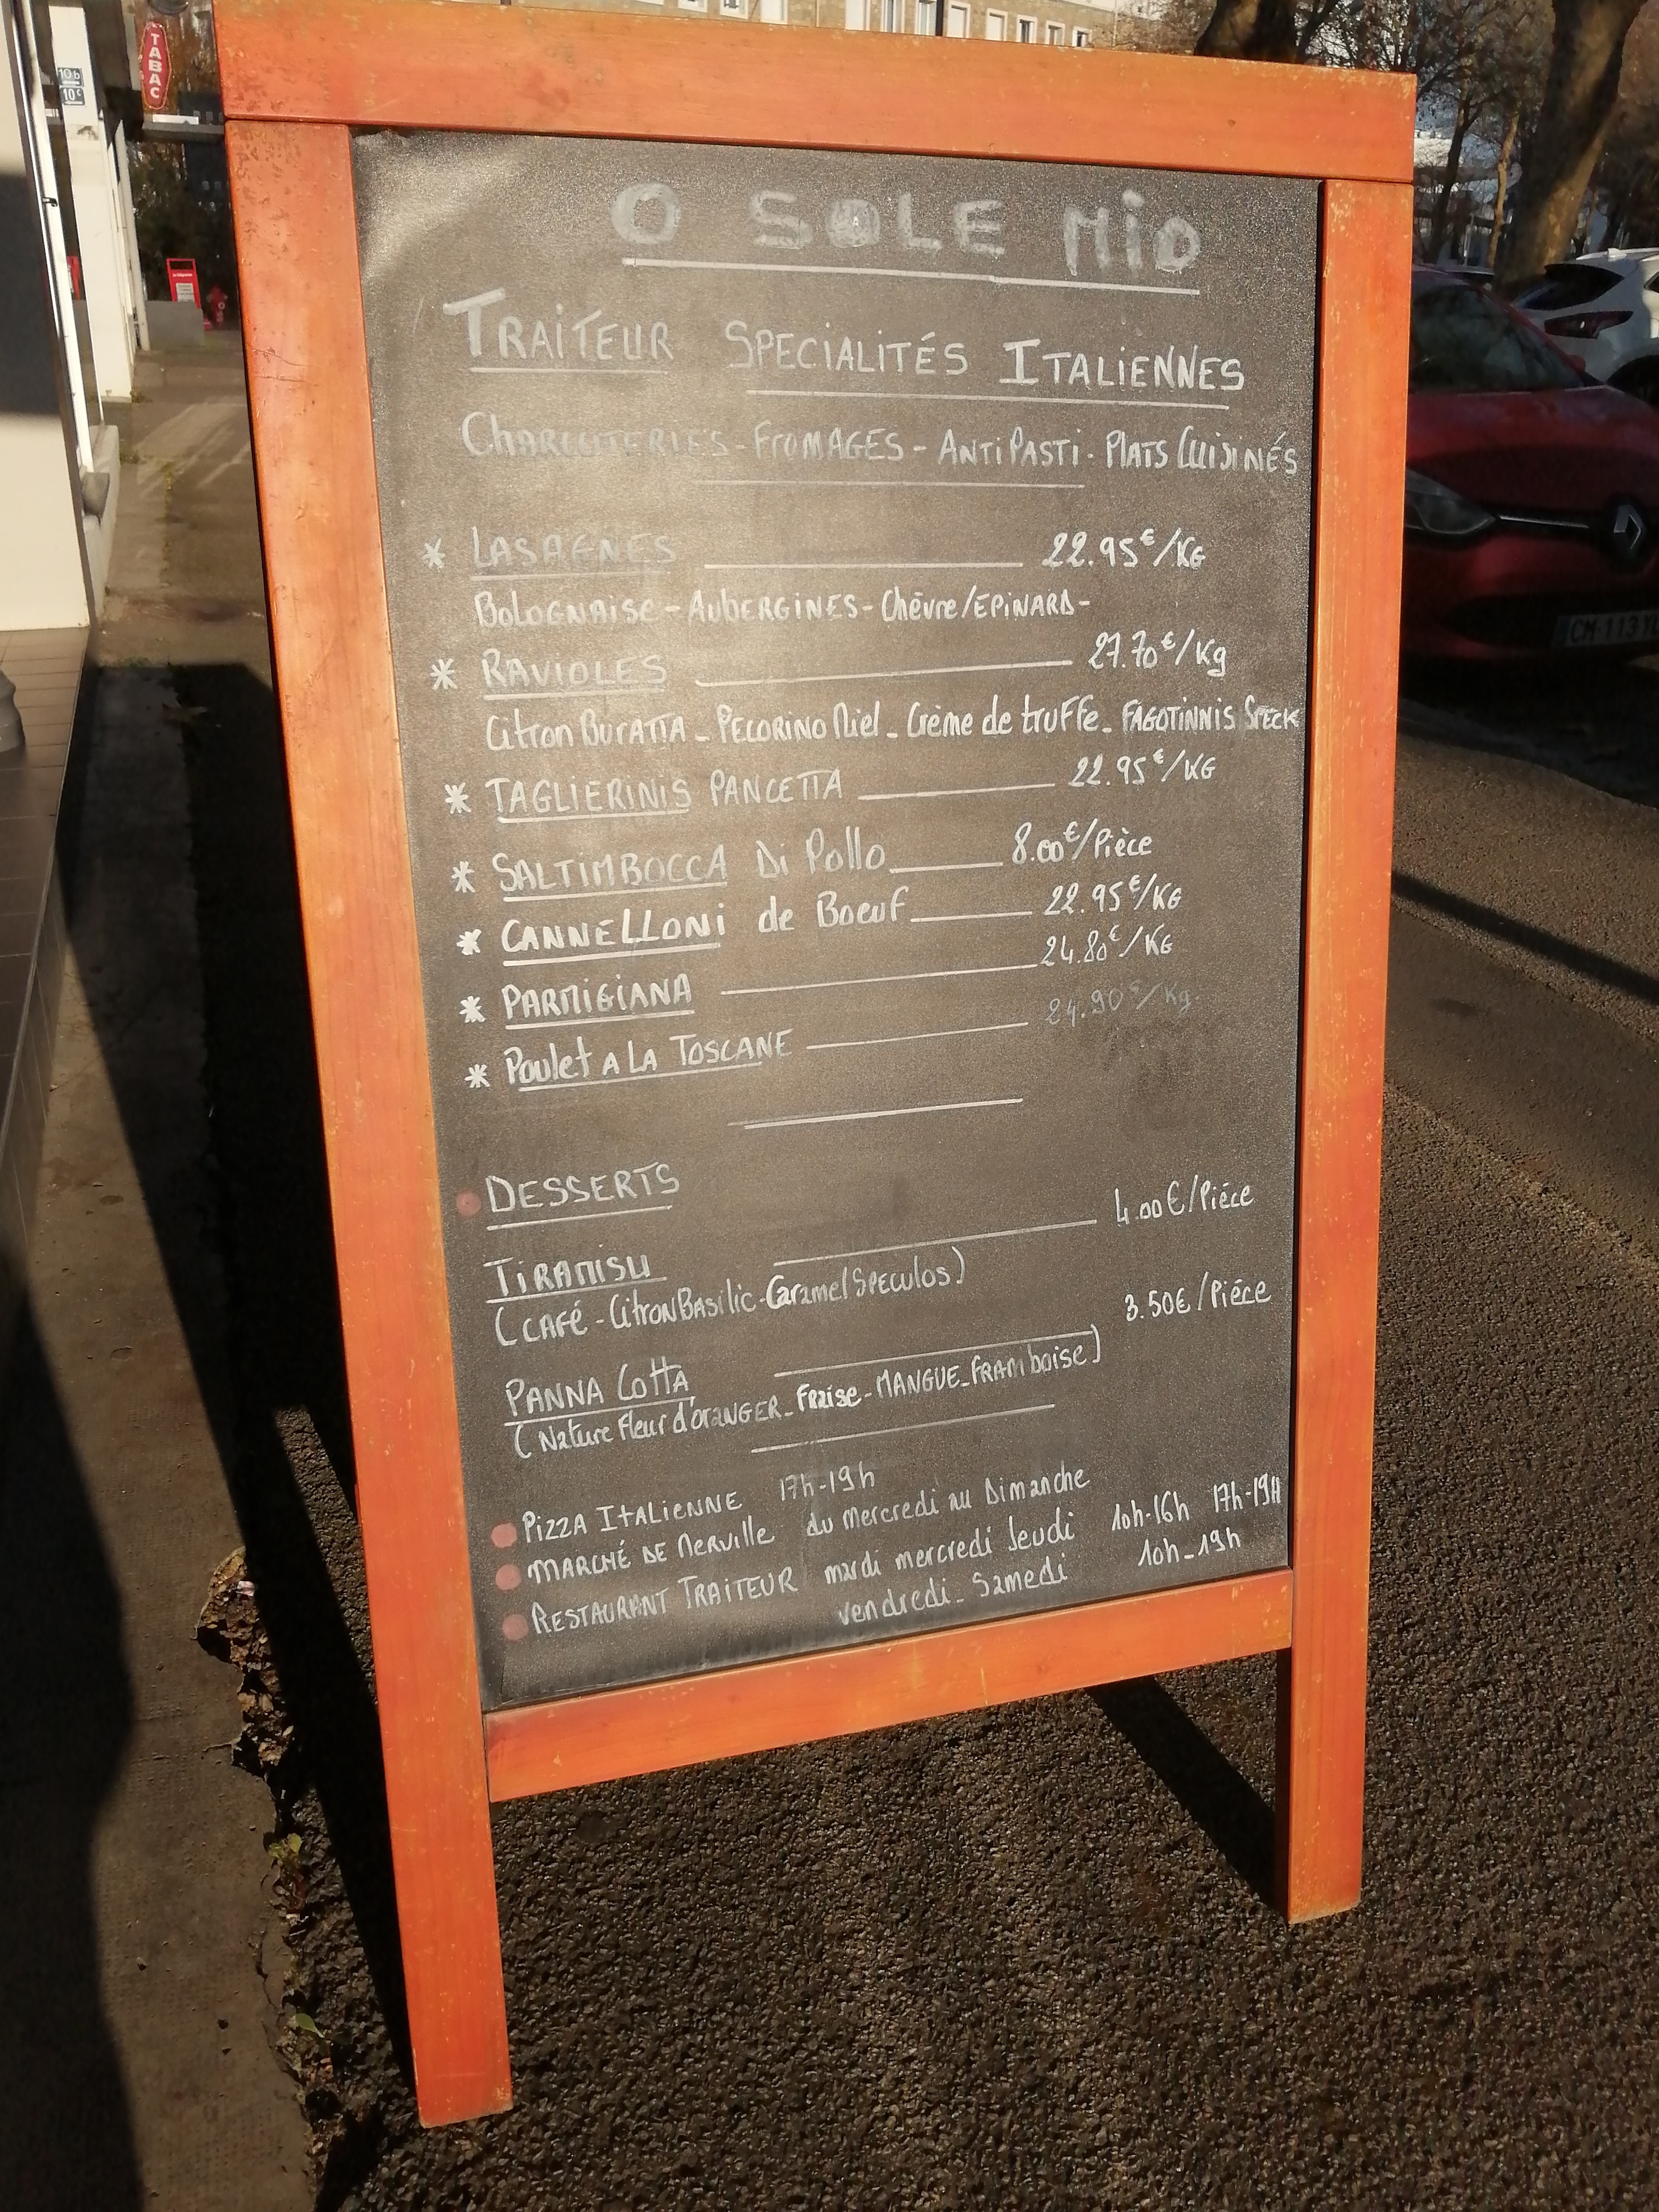 TABAC
10 b
10 c
O SOLE MIO
TRAITEUR SPECIALITÉS ITALIENNES
CHARCUTERIES - FROMAGES - ANTIPASTI - PLATS CUISINÉS
* LASAGNES 22.95€/KG
Bolognaise - AUBERGINES - Chèvre/EPINARD -
* RAVIOLES 27.70€/Kg
Citron BURATTA - PECORINO Miel - Crème de truffe - FAGOTINNIS SPECK
* TAGLIERINIS PANCETTA 22.95€/KG
* SALTIMBOCCA Di Pollo 8.00€/Pièce
* CANNELLONI de Boeuf 22.95€/KG
* PARMIGIANA 24.80€/KG
* Poulet A LA TOSCANE 24.90€/Kg
DESSERTS
TIRAMISU 4.00€/Piéce
(CAFÉ - Citron Basilic - Caramel SPECULOS)
PANNA Cotta 3.50€/Piéce
(Nature Fleur d'ORANGER - Fraise - MANGUE - FRAMboise)
PIZZA ITALIENNE 17h-19h
MARCHÉ DE MERVILLE du Mercredi au Dimanche
RESTAURANT TRAITEUR mardi mercredi Jeudi 10h-16h 17h-19H
vendredi - Samedi 10h-19h